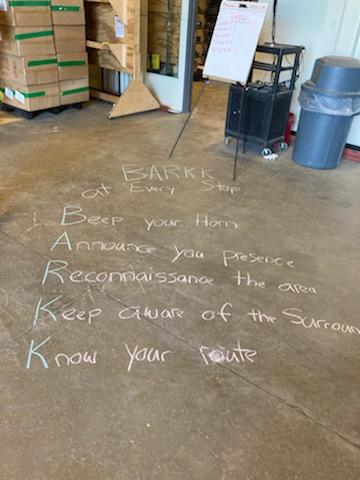 BARKK
at Every Stop
Beep your Horn
Announce you presence
Reconnaissance the area
Keep aware of the Surroun
Know your route